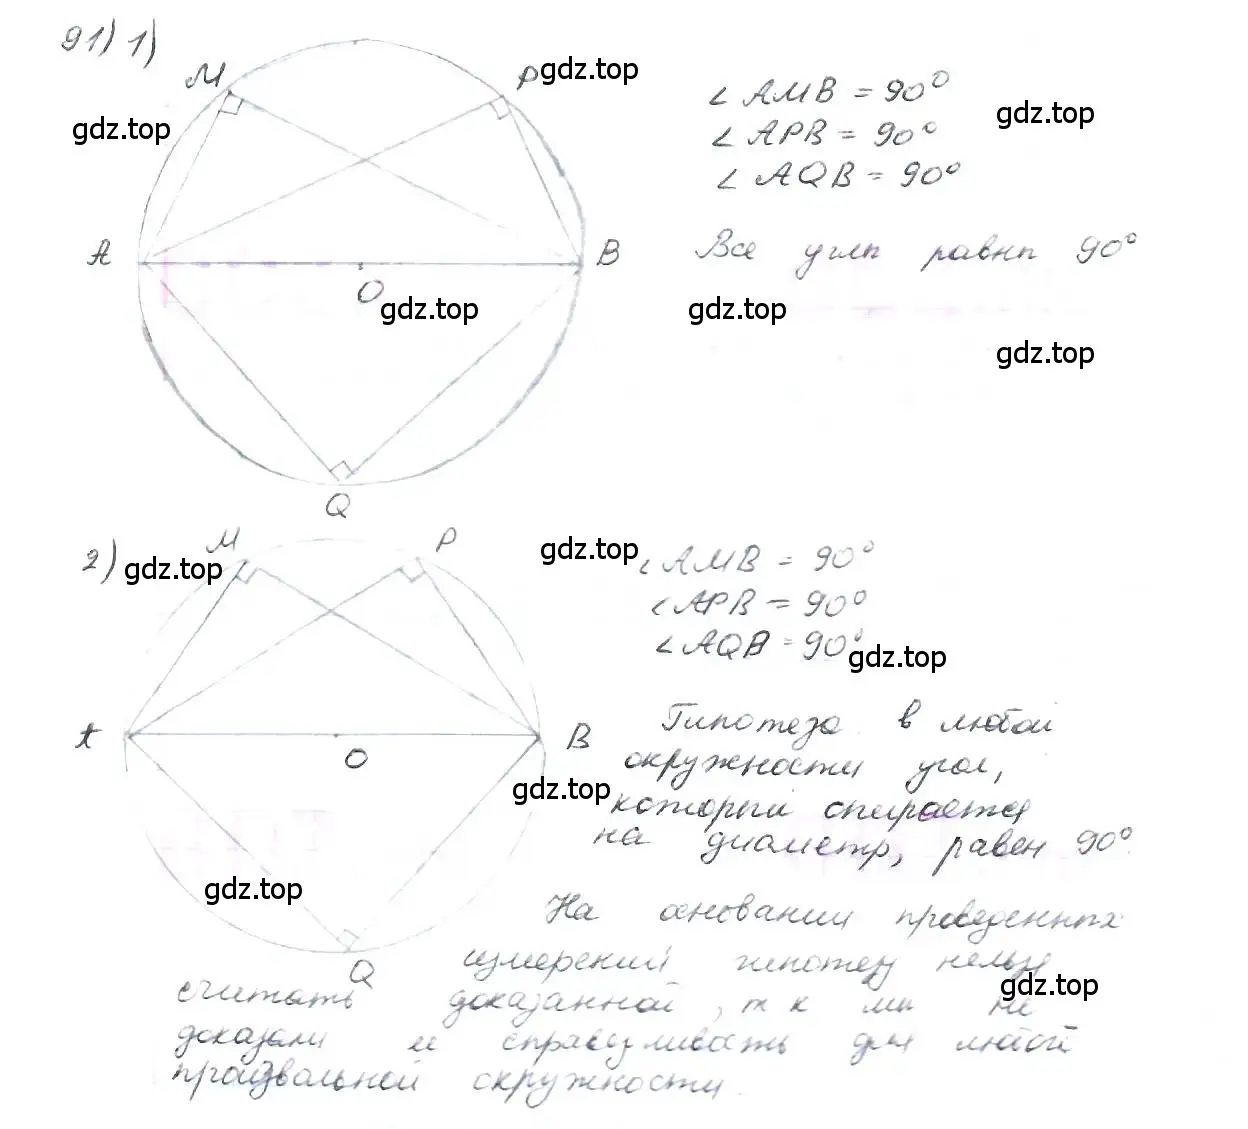 91) 1)
M
P
gdz.top
gdz.top
∠AMB = 90°
gdz.top
∠APB = 90°
∠AQB = 90°
A
B
O
Все углы равны 90°
gdz.top
gdz.top
gdz.top
Q
2)
gdz.top
M
P
gdz.top
∠AMB = 90°
∠APB = 90°
∠AQB = 90°
gdz.top
A
B
O
Гипотеза в любой
окружности угол,
gdz.top
который опирается
на диаметр, равен 90°
gdz.top
Q
На основании проведенных
измерений гипотезу нельзя
gdz.top
считать доказанной, т к мы не
доказали ее справедливость для любой
произвольной окружности.